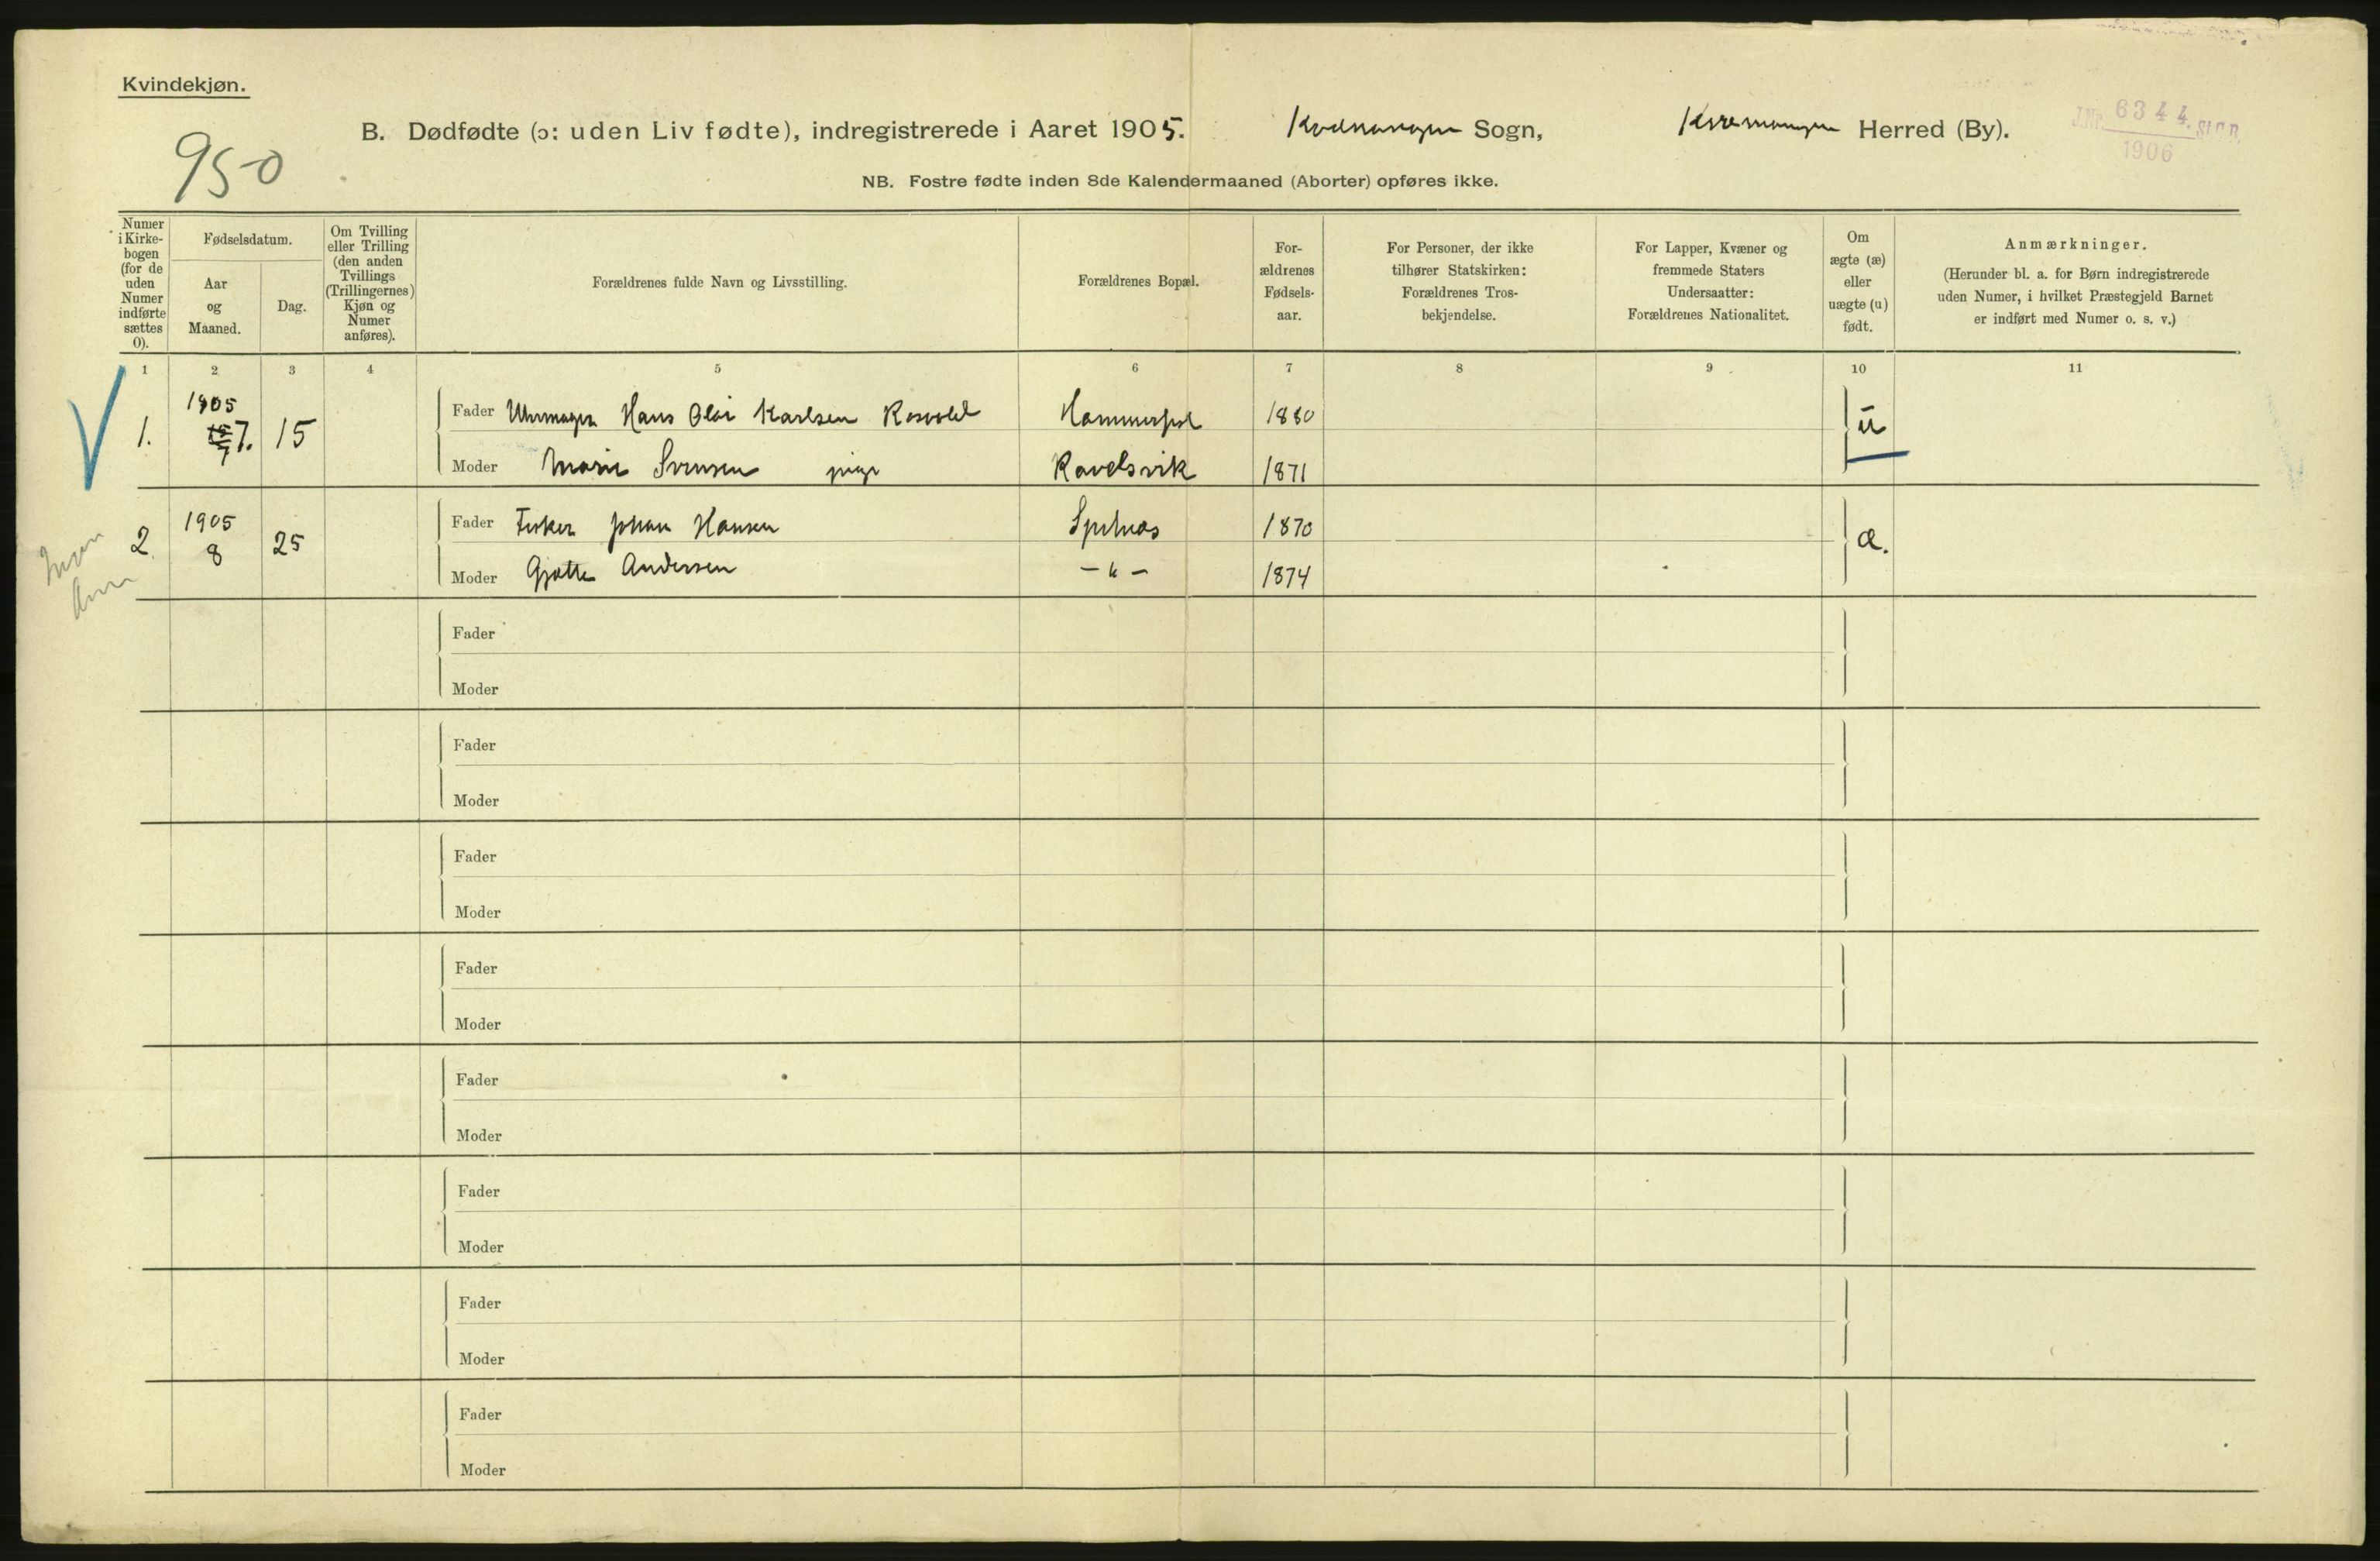 Kvindekjøn.
950
B. Dødfødte (ɔ: uden Liv fødte), indregistrerede i Aaret 1905. Sogn, Herred (By).
J.Nr. 6344. St.C.B.
1906
NB. Fostre fødte inden 8de Kalendermaaned (Aborter) opføres ikke.
Numer i Kirkebogen (for de uden Numer indførte sættes 0).
Fødselsdatum.
Aar og Maaned.
Dag.
Om Tvilling eller Trilling (den anden Tvillings (Trillingernes) Kjøn og Numer anføres).
Forældrenes fulde Navn og Livsstilling.
Forældrenes Bopæl.
For-
ældrenes
Fødsels-
aar.
For Personer, der ikke
tilhører Statskirken:
Forældrenes Tros-
bekjendelse.
For Lapper, Kvæner og
fremmede Staters
Undersaatter:
Forældrenes Nationalitet.
Om
ægte (æ)
eller
uægte (u)
født.
Anmærkninger.
(Herunder bl. a. for Børn indregistrerede
uden Numer, i hvilket Præstegjeld Barnet
er indført med Numer o. s. v.)
1 2 3 4 5 6 7 8 9 10 11
1. 1905 7. 15 Fader Uhrmager Hans Olai Karlsen Hammerfest 1880 u
Moder Marie Svensen pige Ravelsvik 1871
2 1905 8 25 Fader Fisker Johan Hansen Spilnæs 1870 æ.
Moder Andersen — " — 1874
Fader
Moder
Fader
Moder
Fader
Moder
Fader
Moder
Fader
Moder
Fader
Moder
Fader
Moder
Fader
Moder